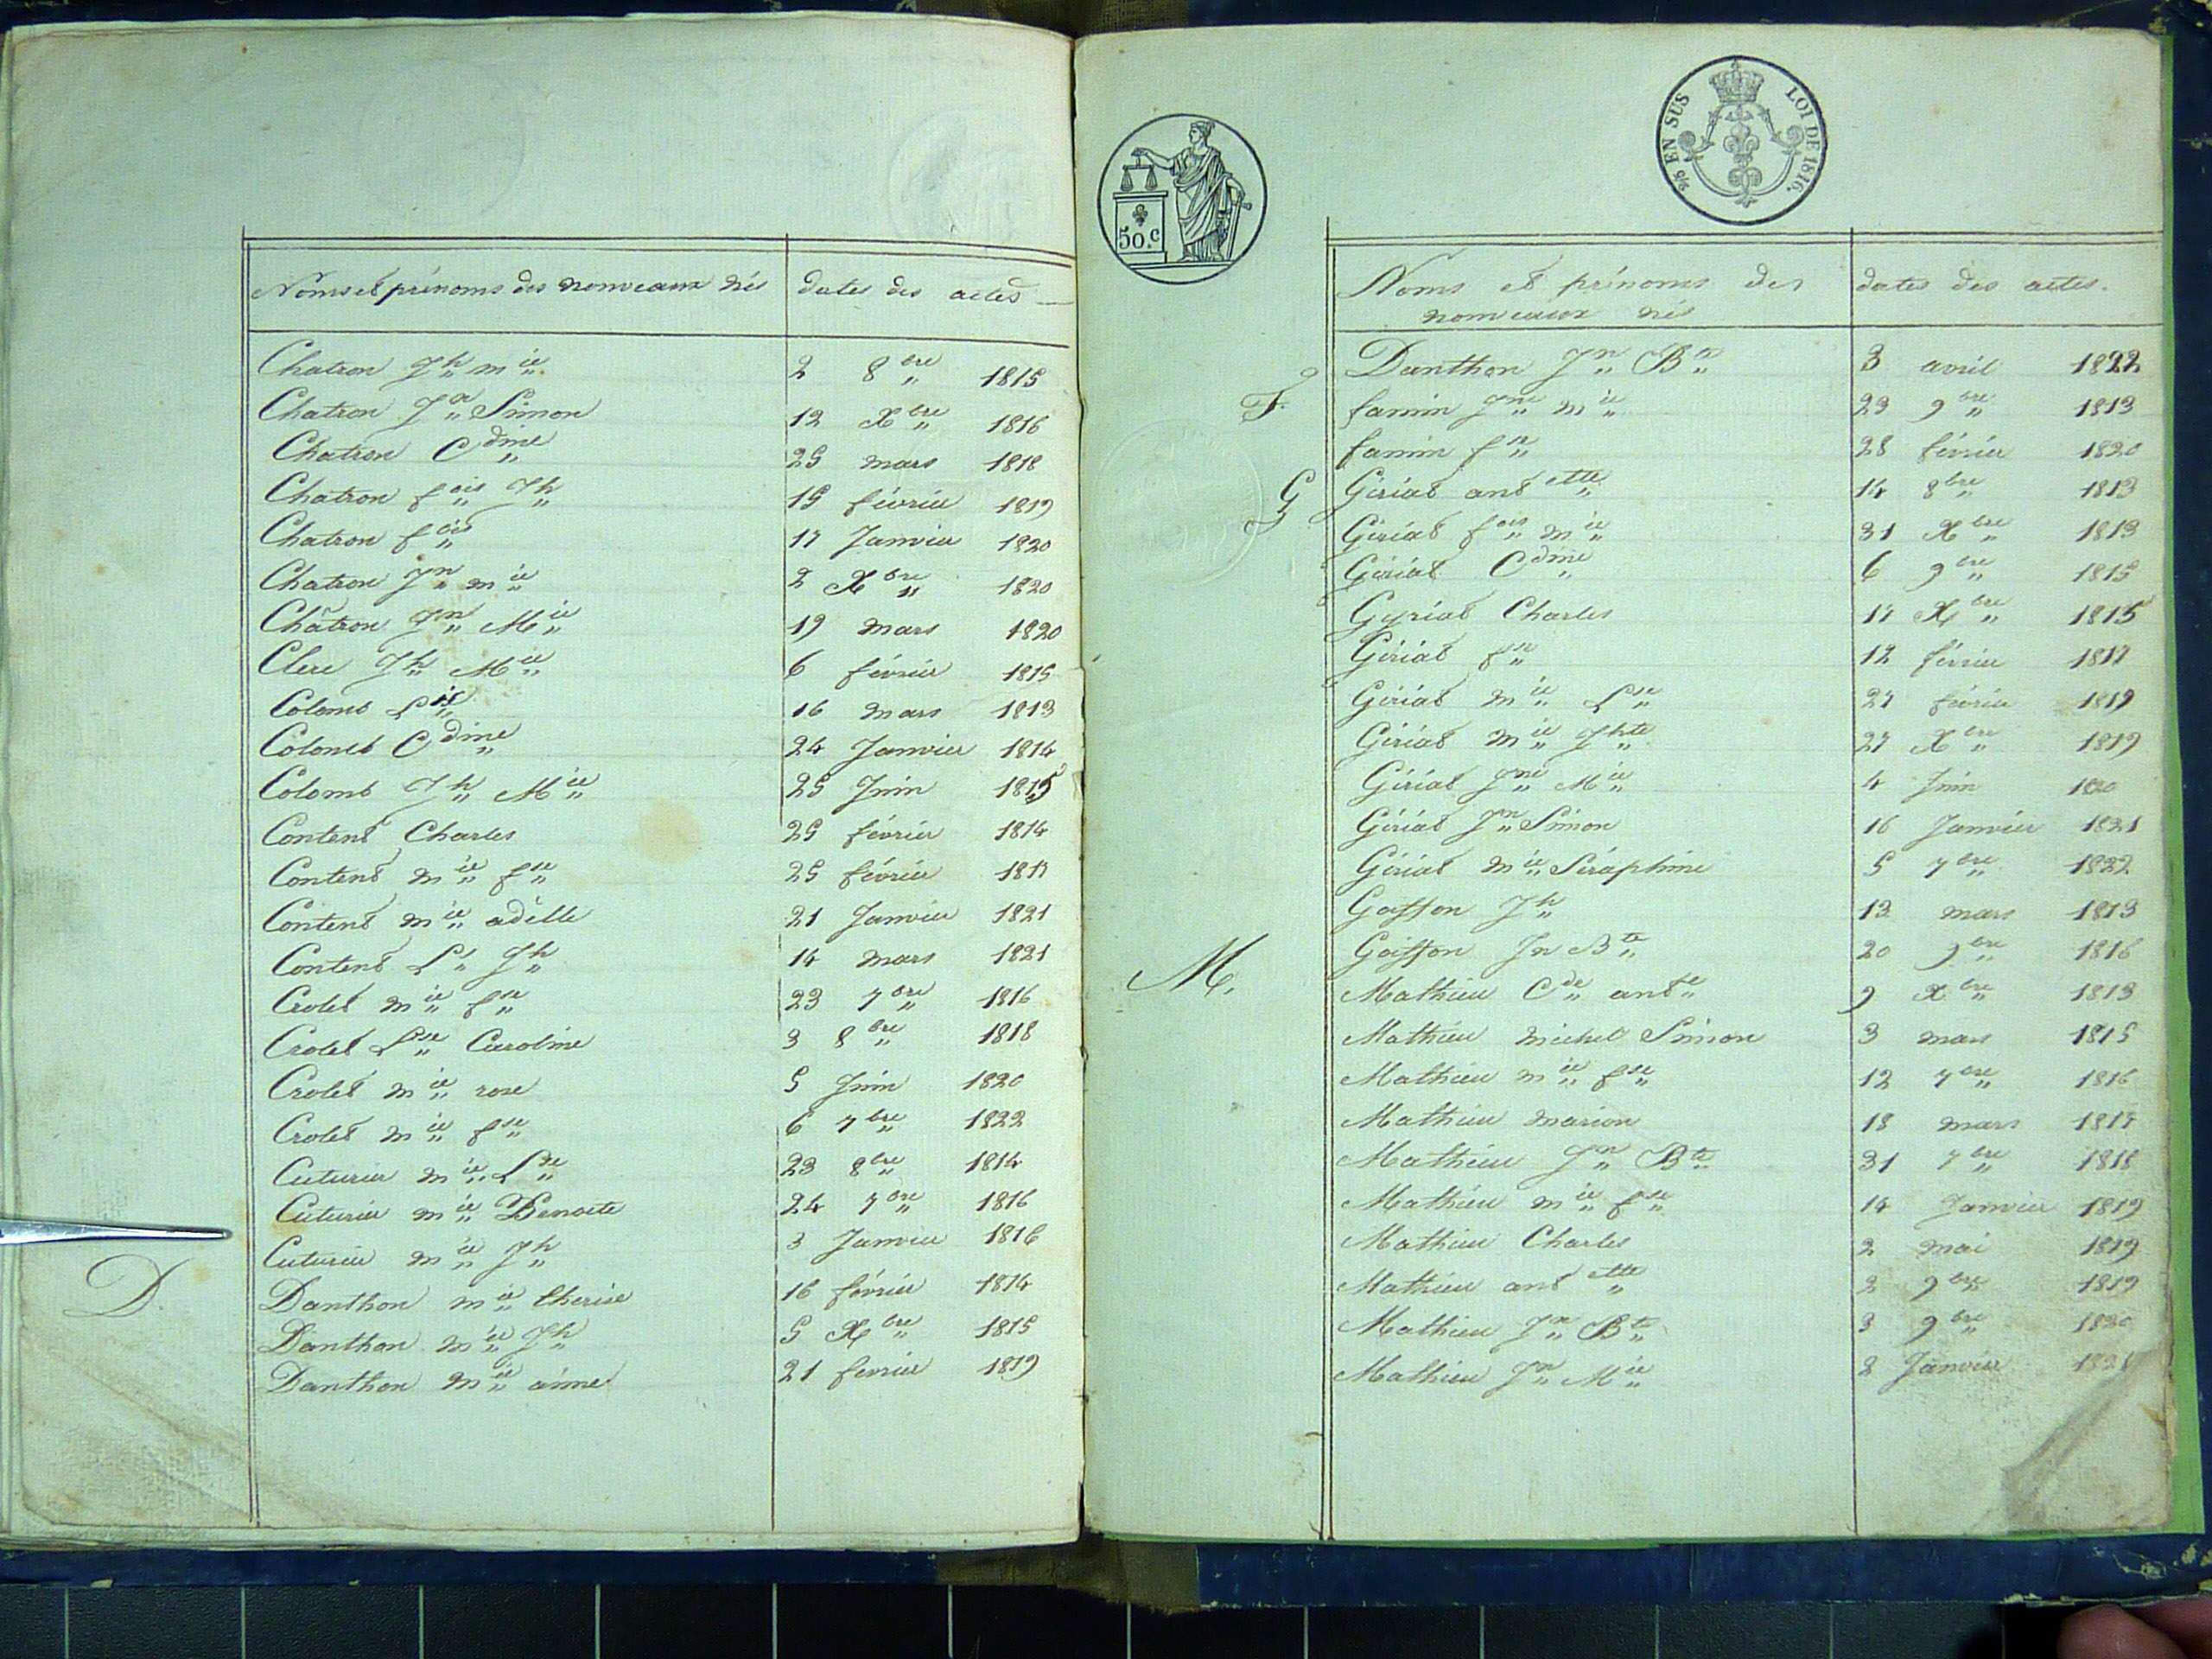 Noms et prénoms des nouveaux nés dates des actes
Chatron Jh mie 2 8bre 1815
Chatron Jn Simon 12 Xbre 1816
Chatron Cdine 25 mars 1818
Chatron fois Jh 15 février 1819
Chatron fois 17 Janvier 1820
Chatron Jn mie 2 Xbre 1820
Chatron Jn Mie 19 mars 1820
Clerc Jh Mie 6 février 1815
Colomb Lis 16 mars 1813
Colomb Cdine 24 Janvier 1814
Colomb Jh Mie 25 Juin 1815
Content Charles 25 février 1814
Content mie fse 25 février 1817
Content mie adèlle 21 Janvier 1821
Content Ls Jh 14 mars 1821
Crolet mie fse 23 7bre 1816
Crolet Lse Caroline 3 8bre 1818
Crolet mie rose 5 Juin 1820
Crolet mie fse 6 7bre 1822
Cuturier mie Lse 23 8bre 1814
Cuturier mie Benoite 24 7bre 1816
Cuturier mie Jh 3 Janvier 1816
D. Danthon mie therèse 16 février 1814
Danthon mie Jh 5 Xbre 1815
Danthon mie aimé 21 fevrier 1819
50.c
EN SUS LOI DE 1816.
Noms et prénoms des dates des actes.
nouveaux nés
Danthon Jn Bte 3 avril 1822
F. famin Jne mie 23 9bre 1813
famin fse 28 février 1820
G Gériat antette 14 8bre 1813
Gériat fois mie 31 Xbre 1813
Gériat Cdine 6 9bre 1815
Gyriat Charles 17 Xbre 1815
Gériat fse 12 février 1817
Gériat mie Lse 27 février 1819
Gériat mie Jhte 27 Xbre 1819
Gériat Jne Mie 4 Juin 1820
Gériat Jn Simon 16 Janvier 1821
Gériat mie Séraphine 5 7bre 1822
Goisson Jh 13 mars 1813
Goisson Jn Bte 20 9bre 1816
M. Mathieu Cde antte 9 Xbre 1813
Mathieu michel Simon 3 mars 1815
Mathieu mie fse 12 7bre 1816
Mathieu marion 18 mars 1817
Mathieu Jn Bte 31 7bre 1818
Mathieu mie fse 14 Janvier 1819
Mathieu Charles 2 mai 1819
Mathieu antette 2 9bre 1819
Mathieu Jn Bte 3 9bre 1820
Mathieu Jn Mie 2 Janvier 1821